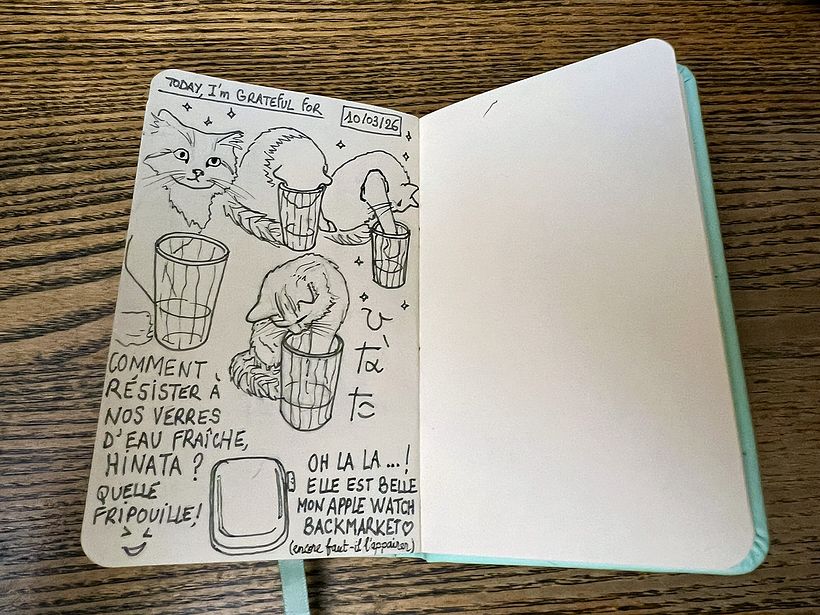 TODAY, I'm GRATEFUL FOR
10/03/26
ひ
な
た
COMMENT
RÉSISTER À
NOS VERRES
D'EAU FRAÎCHE,
HINATA ?
QUELLE
FRIPOUILLE!
OH LA LA ... !
ELLE EST BELLE
MON APPLE WATCH
BACKMARKET♡
(encore faut-il l'appairer)